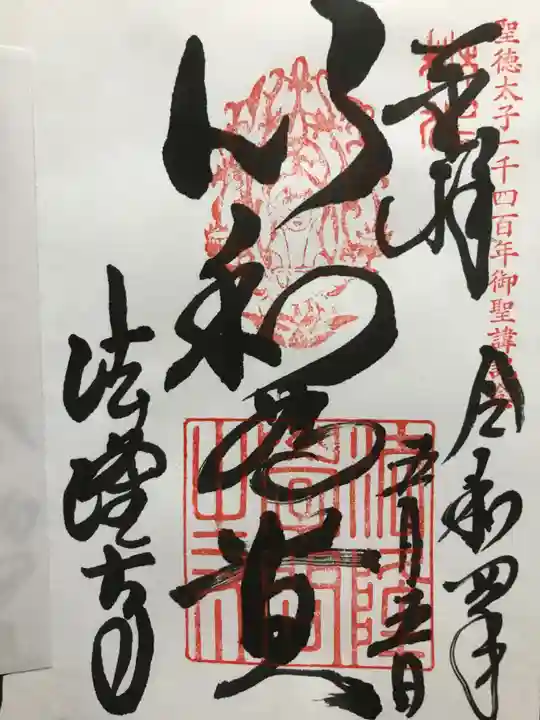 聖徳太子一千四百年御聖諱記念
奉拝
令和四年
五月五日
以和為貴
法隆寺